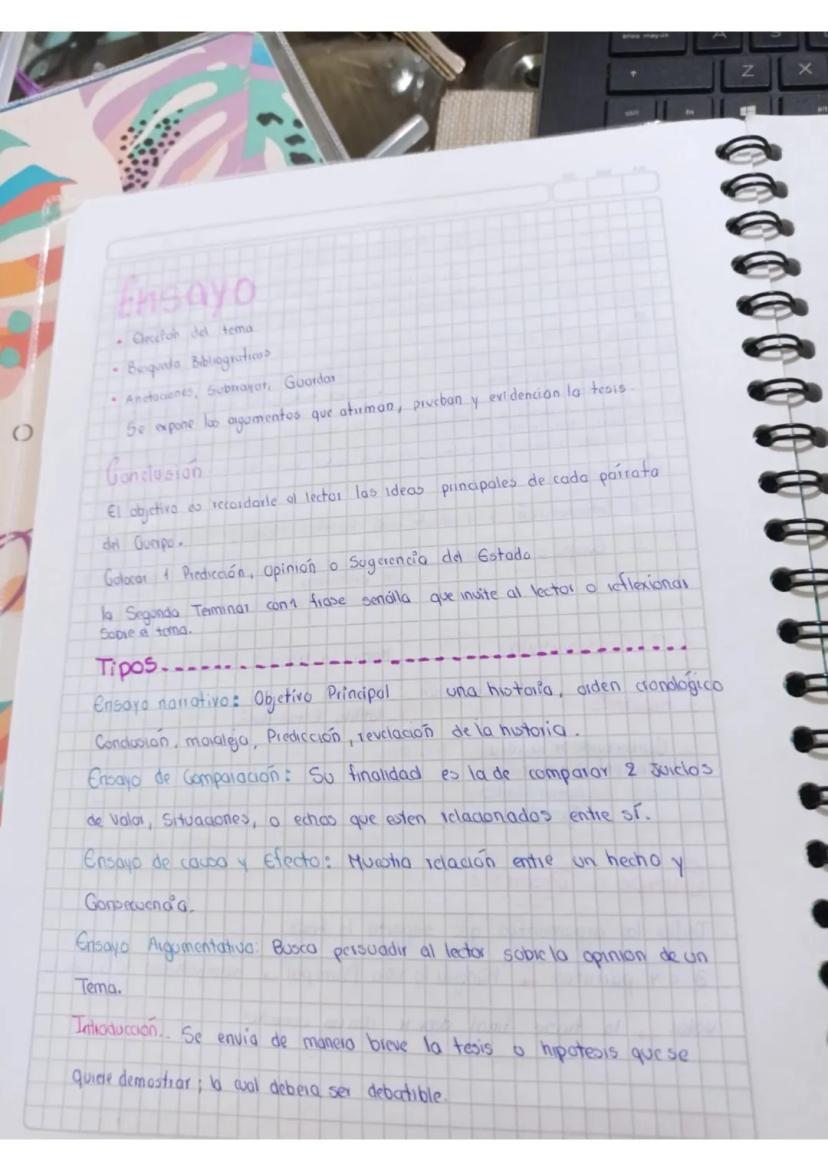 Ensayo
• Elección del tema
• Busqueda Bibliograficos
• Anotaciones, Subrrayar, Guardar
Se expone los argumentos que afirman, prueban y evidencian la tesis.
Conclusión
El objetivo es recordarle al lector las ideas principales de cada paírrafo
del Cuerpo.
Colocar 1 Predicción, Opinión o Sugerencia del Estado
la Segunda Terminar con 1 frase sencilla que invite al lector o reflexionar
Sobre el tema.
Tipos
Ensayo narrativo: Objetivo Principal una historia, orden cronológico
Conclusión, moraleja, Predicción, revelación de la historia.
Ensayo de Comparación: Su finalidad es la de comparar 2 Juicios
de valor, Situaciones, o echos que esten relacionados entre sí.
Ensayo de causa y Efecto: Muestra relación entre un hecho y
Consecuencia.
Ensayo Argumentativo: Busca persuadir al lector sobre la opinion de un
Tema.
Introducción.. Se envía de manera breve la tesis o hipotesis que se
quiere demostrar; la cual debera ser debatible.
bloq mayus
A
S
Z
X
ctrl
fn